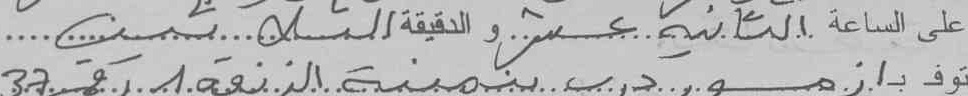 على الساعة الثانية عشر و الدقيقة الستين
توفي بـ ازمور درب بنمينة الزنقة 1 رقم 37